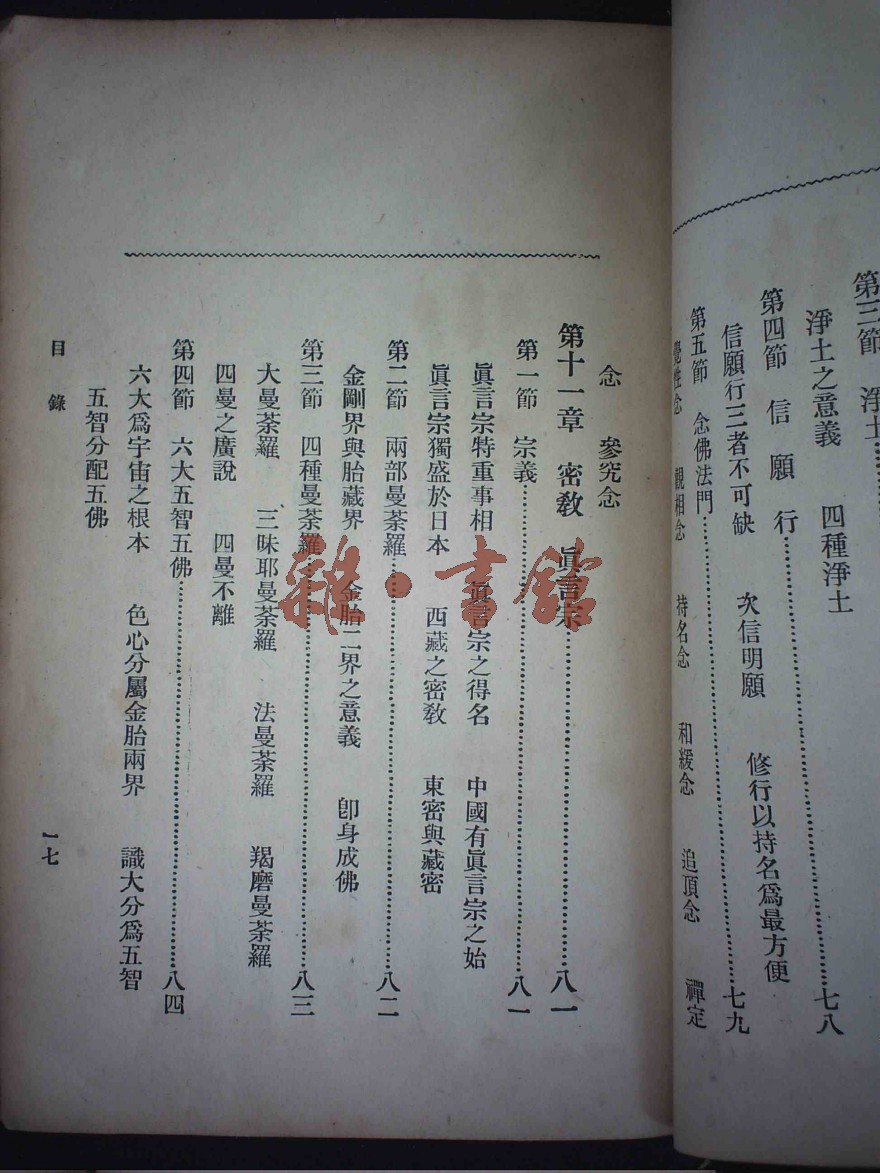 第三節 淨土
淨土之意義 四種淨土
第四節 信願行……七八
信願行三者不可缺 次信明願 修行以持名爲最方便
第五節 念佛法門……七九
覺性念 觀相念 持名念 和緩念 追頂念 禪定
念 參究念
第十一章 密敎 眞言宗……八一
第一節 宗義……八一
眞言宗特重事相 眞言宗之得名 中國有眞言宗之始
眞言宗獨盛於日本 西藏之密敎 東密與藏密
第二節 兩部曼荼羅……八二
金剛界與胎藏界 金胎二界之意義 卽身成佛
第三節 四種曼荼羅……八三
大曼荼羅 三昧耶曼荼羅 法曼荼羅 羯磨曼荼羅
四曼之廣說 四曼不離
第四節 六大五智五佛……八四
六大爲宇宙之根本 色心分屬金胎兩界 識大分爲五智
五智分配五佛
目錄
一七
雜·書館